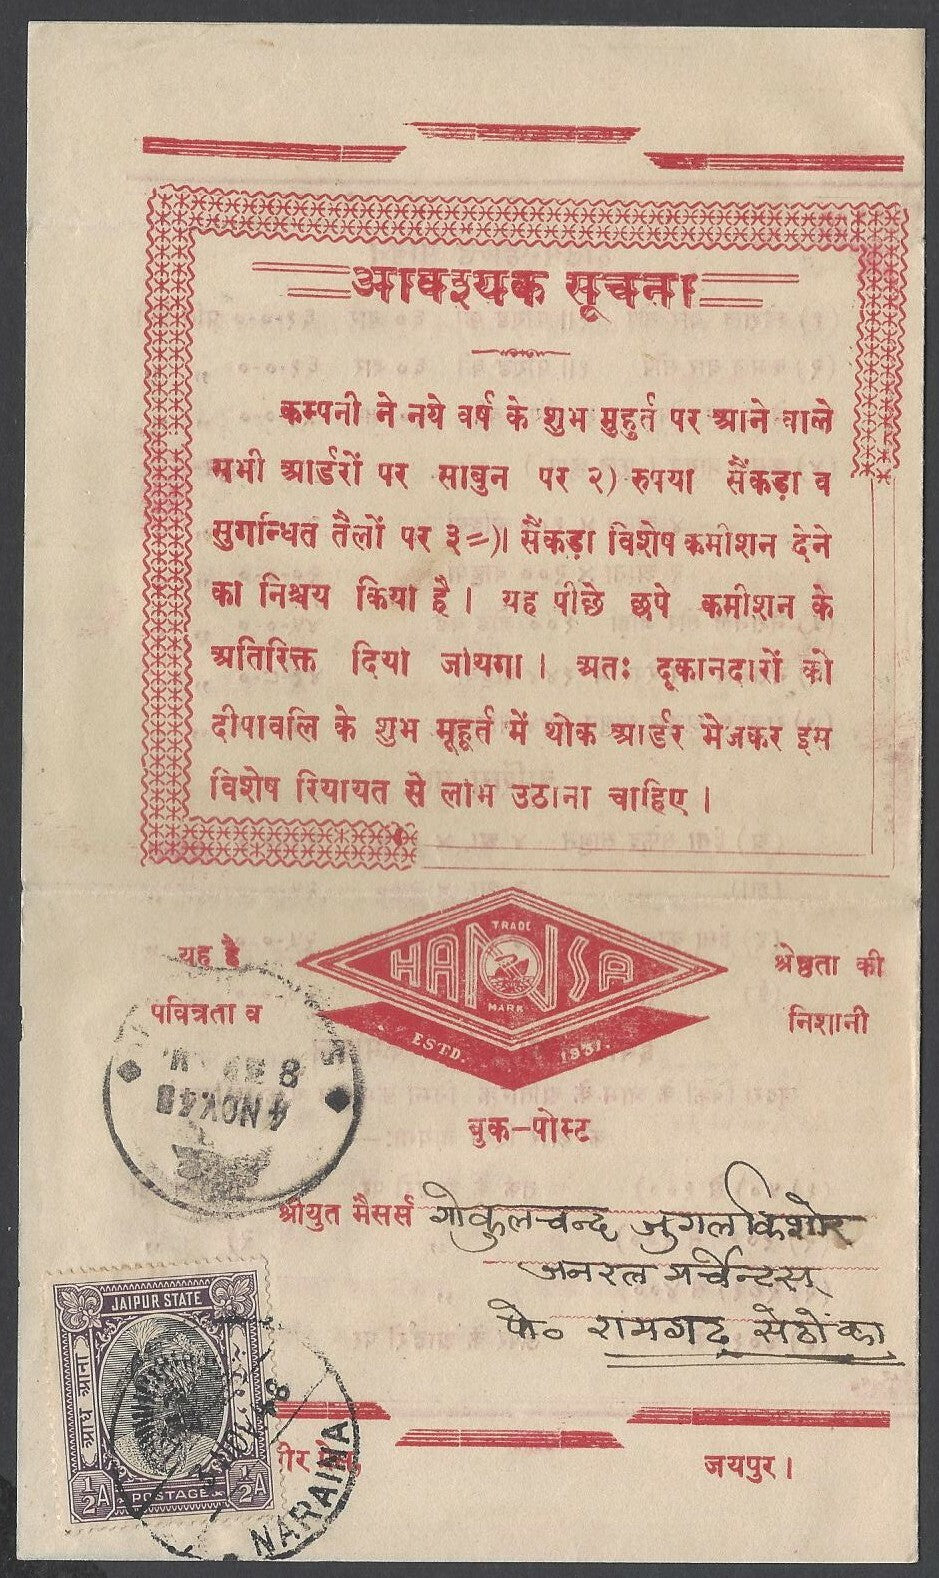 आवश्यक सूचना
कम्पनी ने नये वर्ष के शुभ मुहुर्त पर आने वाले
सभी आर्डरों पर साबुन पर २) रुपया सैंकड़ा व
सुगन्धित तैलों पर ३=)। सैंकड़ा विशेष कमीशन देने
का निश्चय किया है । यह पीछे छपे कमीशन के
अतिरिक्त दिया जायगा । अतः दूकानदारों को
दीपावलि के शुभ मूहूर्त में थोक आर्डर भेजकर इस
विशेष रियायत से लाभ उठाना चाहिए ।
यह है
पवित्रता व
TRADE
HANSA
MARK
ESTD. 1931.
श्रेष्ठता की
निशानी
8
4 NOV 48
बुक-पोस्ट
श्रीयुत मैसर्स गोकुलचन्द जुगलकिशोर
जनरल मर्चेन्टस्
पो० रामगढ़ सेठोंका
JAIPUR STATE
आध आना
½A POSTAGE ½A
NOV 48
NARAINA
जयपुर ।